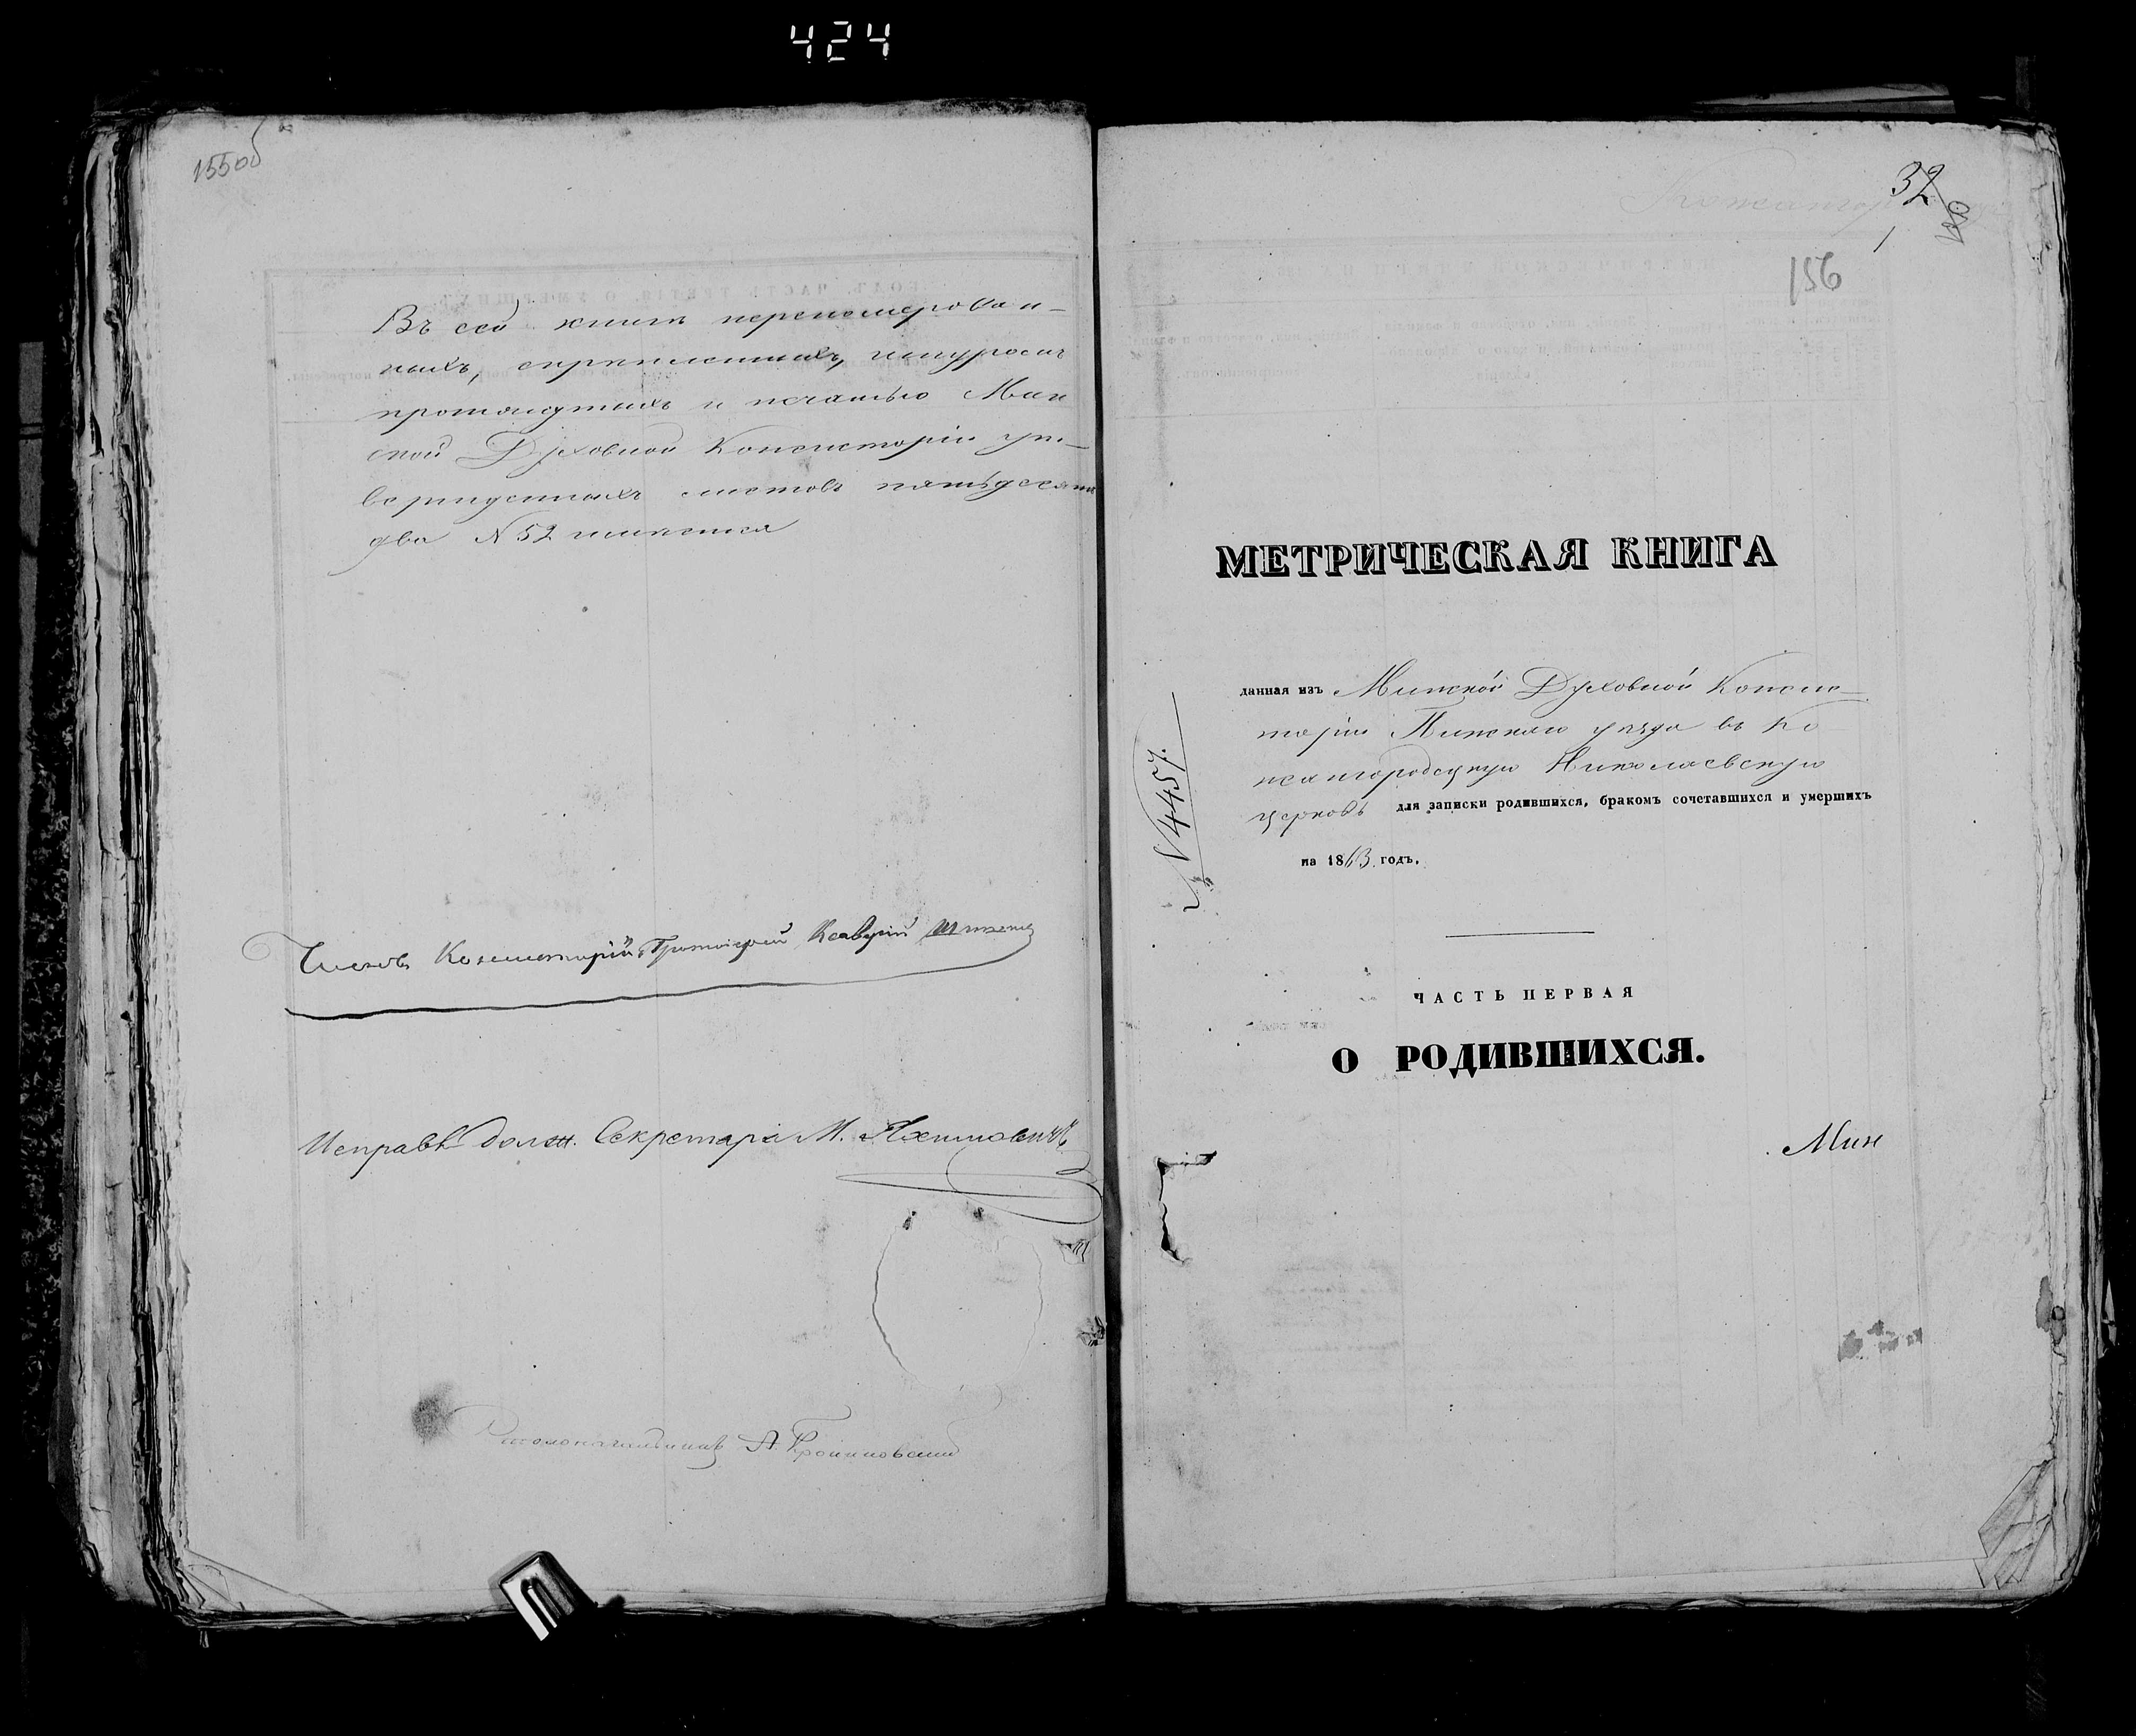 424
155об
Въ сей книгѣ перенумерован-
ныхъ, скрѣпленныхъ, шнуромъ
протянутыхъ и печатью Мин
ской Духовной Консисторіи ут-
вержденныхъ листовъ пятьдесятъ
два № 52 имѣется
Членъ Консисторіи, Протоіерей Ксаверій
Исправл. долж. Секретаря М.
Столоначальникъ А.
32
100
1
156
МЕТРИЧЕСКАЯ КНИГА
данная изъ Минской Духовной Консис-
торіи Пинскаго уѣзда въ Ко
жангородецкую Николаевскую
церковь для записки родившихся, бракомъ сочетавшихся и умершихъ
на 1863 годъ.
№ 4457.
ЧАСТЬ ПЕРВАЯ
О РОДИВШИХСЯ.
Мин